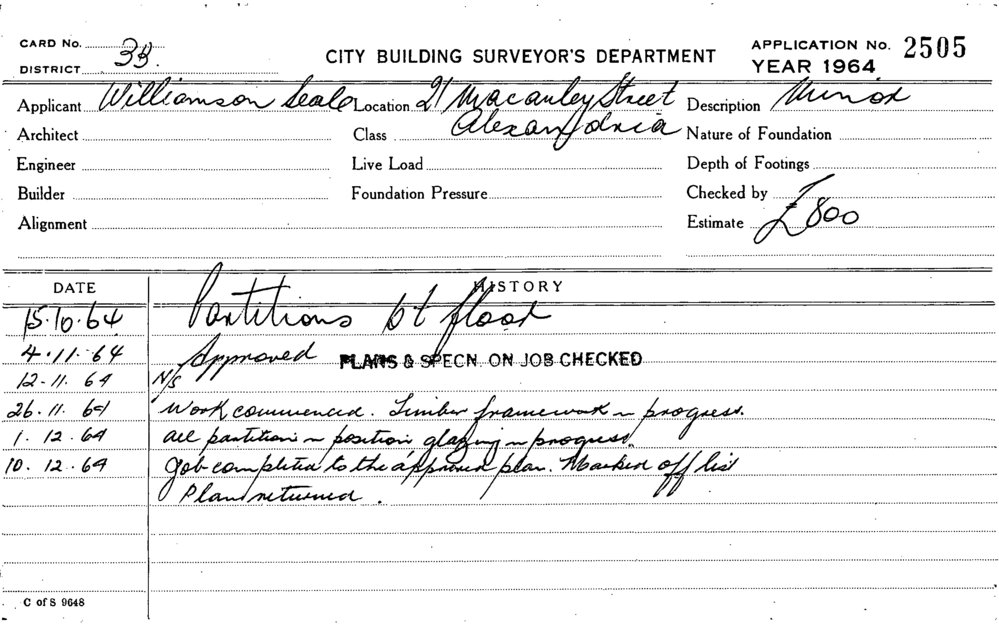 CARD No. 33.
DISTRICT
CITY BUILDING SURVEYOR'S DEPARTMENT
APPLICATION No. 2505
YEAR 1964
Applicant Williamson Seale Location 21 Macauley Street Description Minor
Architect Class Alexandria Nature of Foundation
Engineer Live Load Depth of Footings
Builder Foundation Pressure Checked by
Alignment Estimate £800
DATE HISTORY
15.10.64 Partitions 1st floor
4.11.64 Approved PLANS & SPECN. ON JOB CHECKED
12.11.64 N/S
26.11.64 Work commenced. Timber framework in progress.
1.12.64 all partitions in position glazing in progress.
10.12.64 Job completed to the approved plan. Marked off list
Plan returned.
C of S 9648